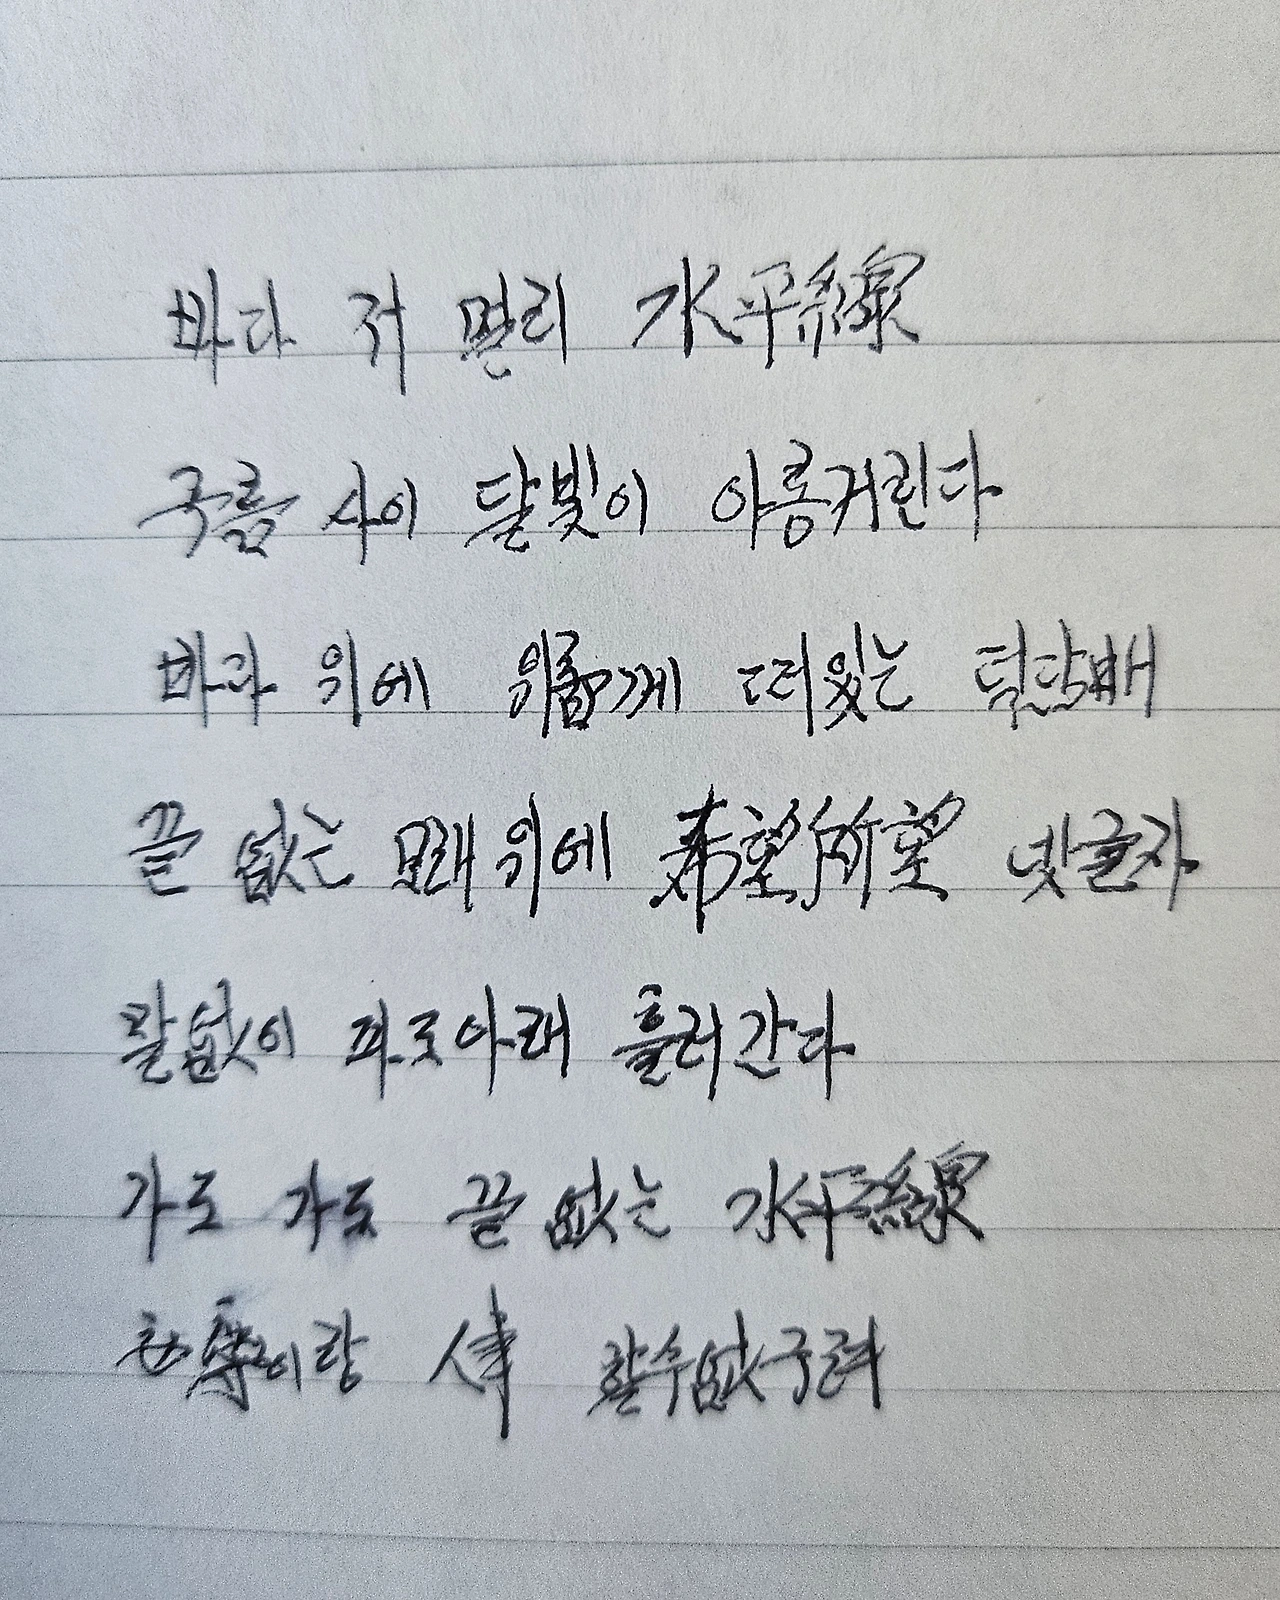 바다 저 멀리 水平線
구름 사이 달빛이 아롱거린다
바다 위에 위롭게 떠있는 돛단배
끝 없는 모래 위에 希望所望 넛글자
말없이 파도아래 흘러간다
가도 가도 끝 없는 水平線
人事 할수없구려